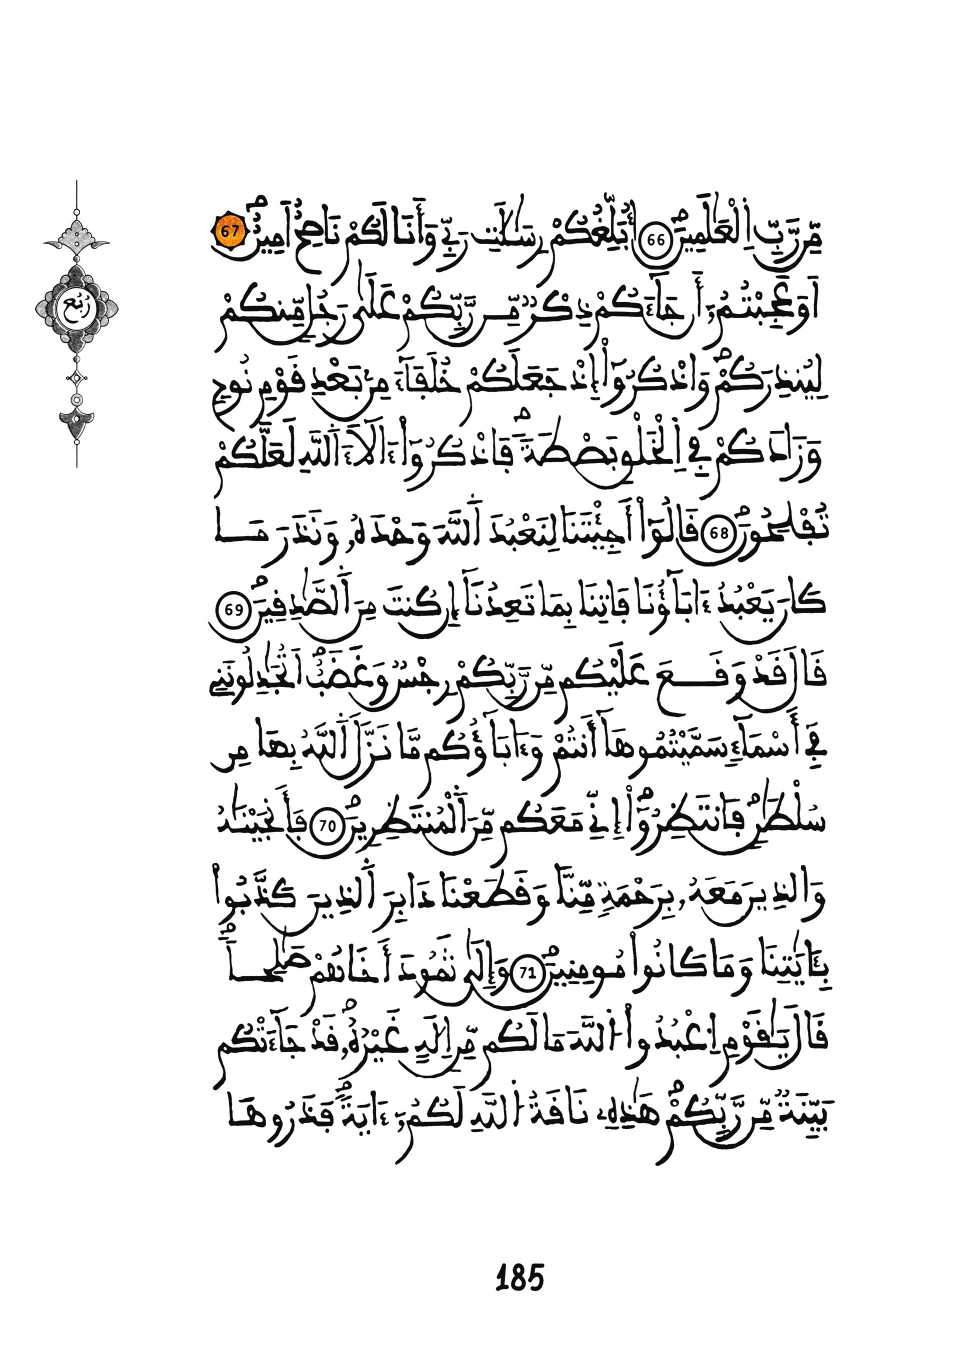 مِّن رَّبِّ اِ۬لْعَٰلَمِينَۖ 66 أُبَلِّغُكُمْ رِسَٰلَٰتِ رَبِّے وَأَنَا لَكُمْ نَاصِحٌ اَمِينٌۖ 67
اَوَعَجِبْتُمُۥٓ أَن جَآءَكُمْ ذِكْرٌ مِّن رَّبِّكُمْ عَلَىٰ رَجُلٖ مِّنكُمْ
لِيُنذِرَكُمْۖ وَاذْكُرُوٓاْ إِذْ جَعَلَكُمْ خُلَفَآءَ مِنۢ بَعْدِ قَوْمِ نُوحٖ
وَزَادَكُمْ فِے اِ۬لْخَلْقِ بَصْۜطَةٗۖ فَاذْكُرُوٓاْ ءَالَآءَ اَ۬للَّهِ لَعَلَّكُمْ
تُفْلِحُونَۖ 68 قَالُوٓاْ أَجِئْتَنَا لِنَعْبُدَ اَ۬للَّهَ وَحْدَهُۥ وَنَذَرَ مَا
كَانَ يَعْبُدُ ءَابَآؤُنَا فَاتِنَا بِمَا تَعِدُنَآ إِن كُنتَ مِنَ اَ۬لصَّٰدِقِينَۖ 69
قَالَ قَدْ وَقَعَ عَلَيْكُم مِّن رَّبِّكُمْ رِجْسٞ وَغَضَبٌۖ اَتُجَٰدِلُونَنِے
فِےٓ أَسْمَآءٖ سَمَّيْتُمُوهَآ أَنتُمْ وَءَابَآؤُكُم مَّا نَزَّلَ اَ۬للَّهُ بِهَا مِن
سُلْطَٰنٖۖ فَانتَظِرُوٓاْ إِنِّے مَعَكُم مِّنَ اَ۬لْمُنتَظِرِينَۖ 70 فَأَنجَيْنَٰهُ
وَالذِينَ مَعَهُۥ بِرَحْمَةٖ مِّنَّا وَقَطَعْنَا دَابِرَ اَ۬لذِينَ كَذَّبُواْ
بِـَٔايَٰتِنَا وَمَا كَانُواْ مُومِنِينَۖ 71 وَإِلَىٰ ثَمُودَ أَخَاهُمْ صَٰلِحاٗۖ
قَالَ يَٰقَوْمِ اِ۟عْبُدُواْ اُ۬للَّهَ مَا لَكُم مِّنِ اِلَٰهٍ غَيْرُهُۥۖ قَدْ جَآءَتْكُم
بَيِّنَةٞ مِّن رَّبِّكُمْۖ هَٰذِهِۦ نَاقَةُ اُ۬للَّهِ لَكُمُۥٓ ءَايَةٗۖ فَذَرُوهَا
رُبُع
185